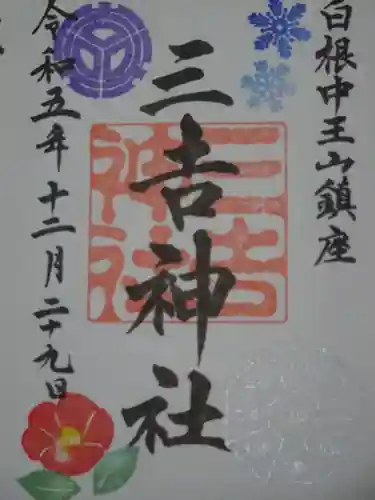 白根中王山鎮座
三吉神社
三吉
神社
令和五年十二月二十九日